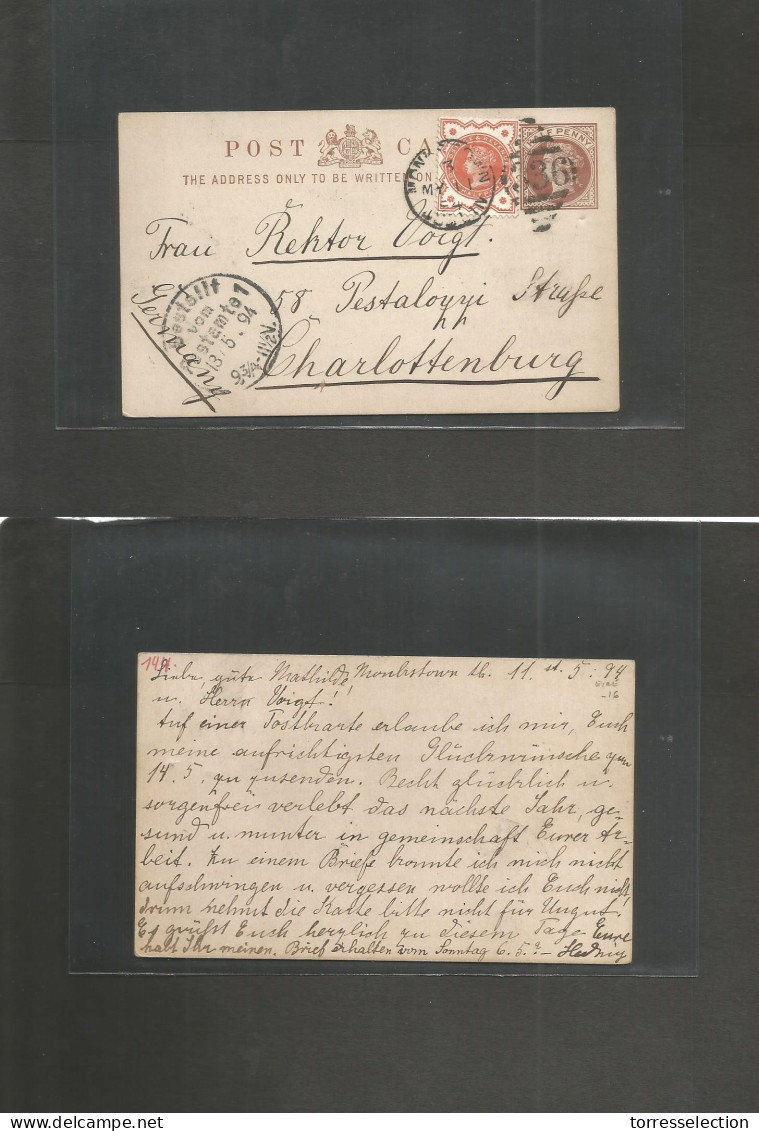 POST CA
THE ADDRESS ONLY TO BE WRITTEN ON
PENNY
36
MY
94
Frau Rektor Voigt.
58 Pestalozzi Straße
Charlottenburg
Germany
Bestellt
vom
Postamte 1
13/5 94
9¾-11½V.
149.
Liebe, gute Mathilde! Monkstown d. 11. st. 5. 94
EIRE
-16
u. Herrn Voigt!
Auf einer Postkarte erlaube ich mir, Euch
meine aufrichtigsten Glückwünsche zum
14.5. zu zusenden. Recht glücklich u.
sorgenfrei verlebt das nächste Jahr, ge-
sund u. munter in gemeinschaft Eurer Ar-
beit. Zu einem Briefe konnte ich mich nicht
aufschwingen u. vergessen wollte ich Euch nicht,
drum nehmt die Karte bitte nicht für Ungut.
Es grüßt Euch herzlich zu diesem Tage Eure
habt Ihr meinen Brief erhalten vom Sonntag 6.5.? – Hedwig
torresselection